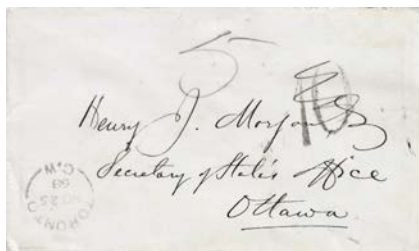 5
10
Henry J. Morgan
Secretary of State's Office
Ottawa
TORONTO
C.W